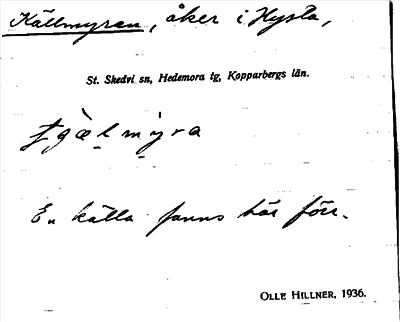 Källmyran, åker i Hysta,
St. Skedvi sn, Hedemora tg, Kopparbergs län.
En källa fanns här förr.
OLLE HILLNER, 1936.